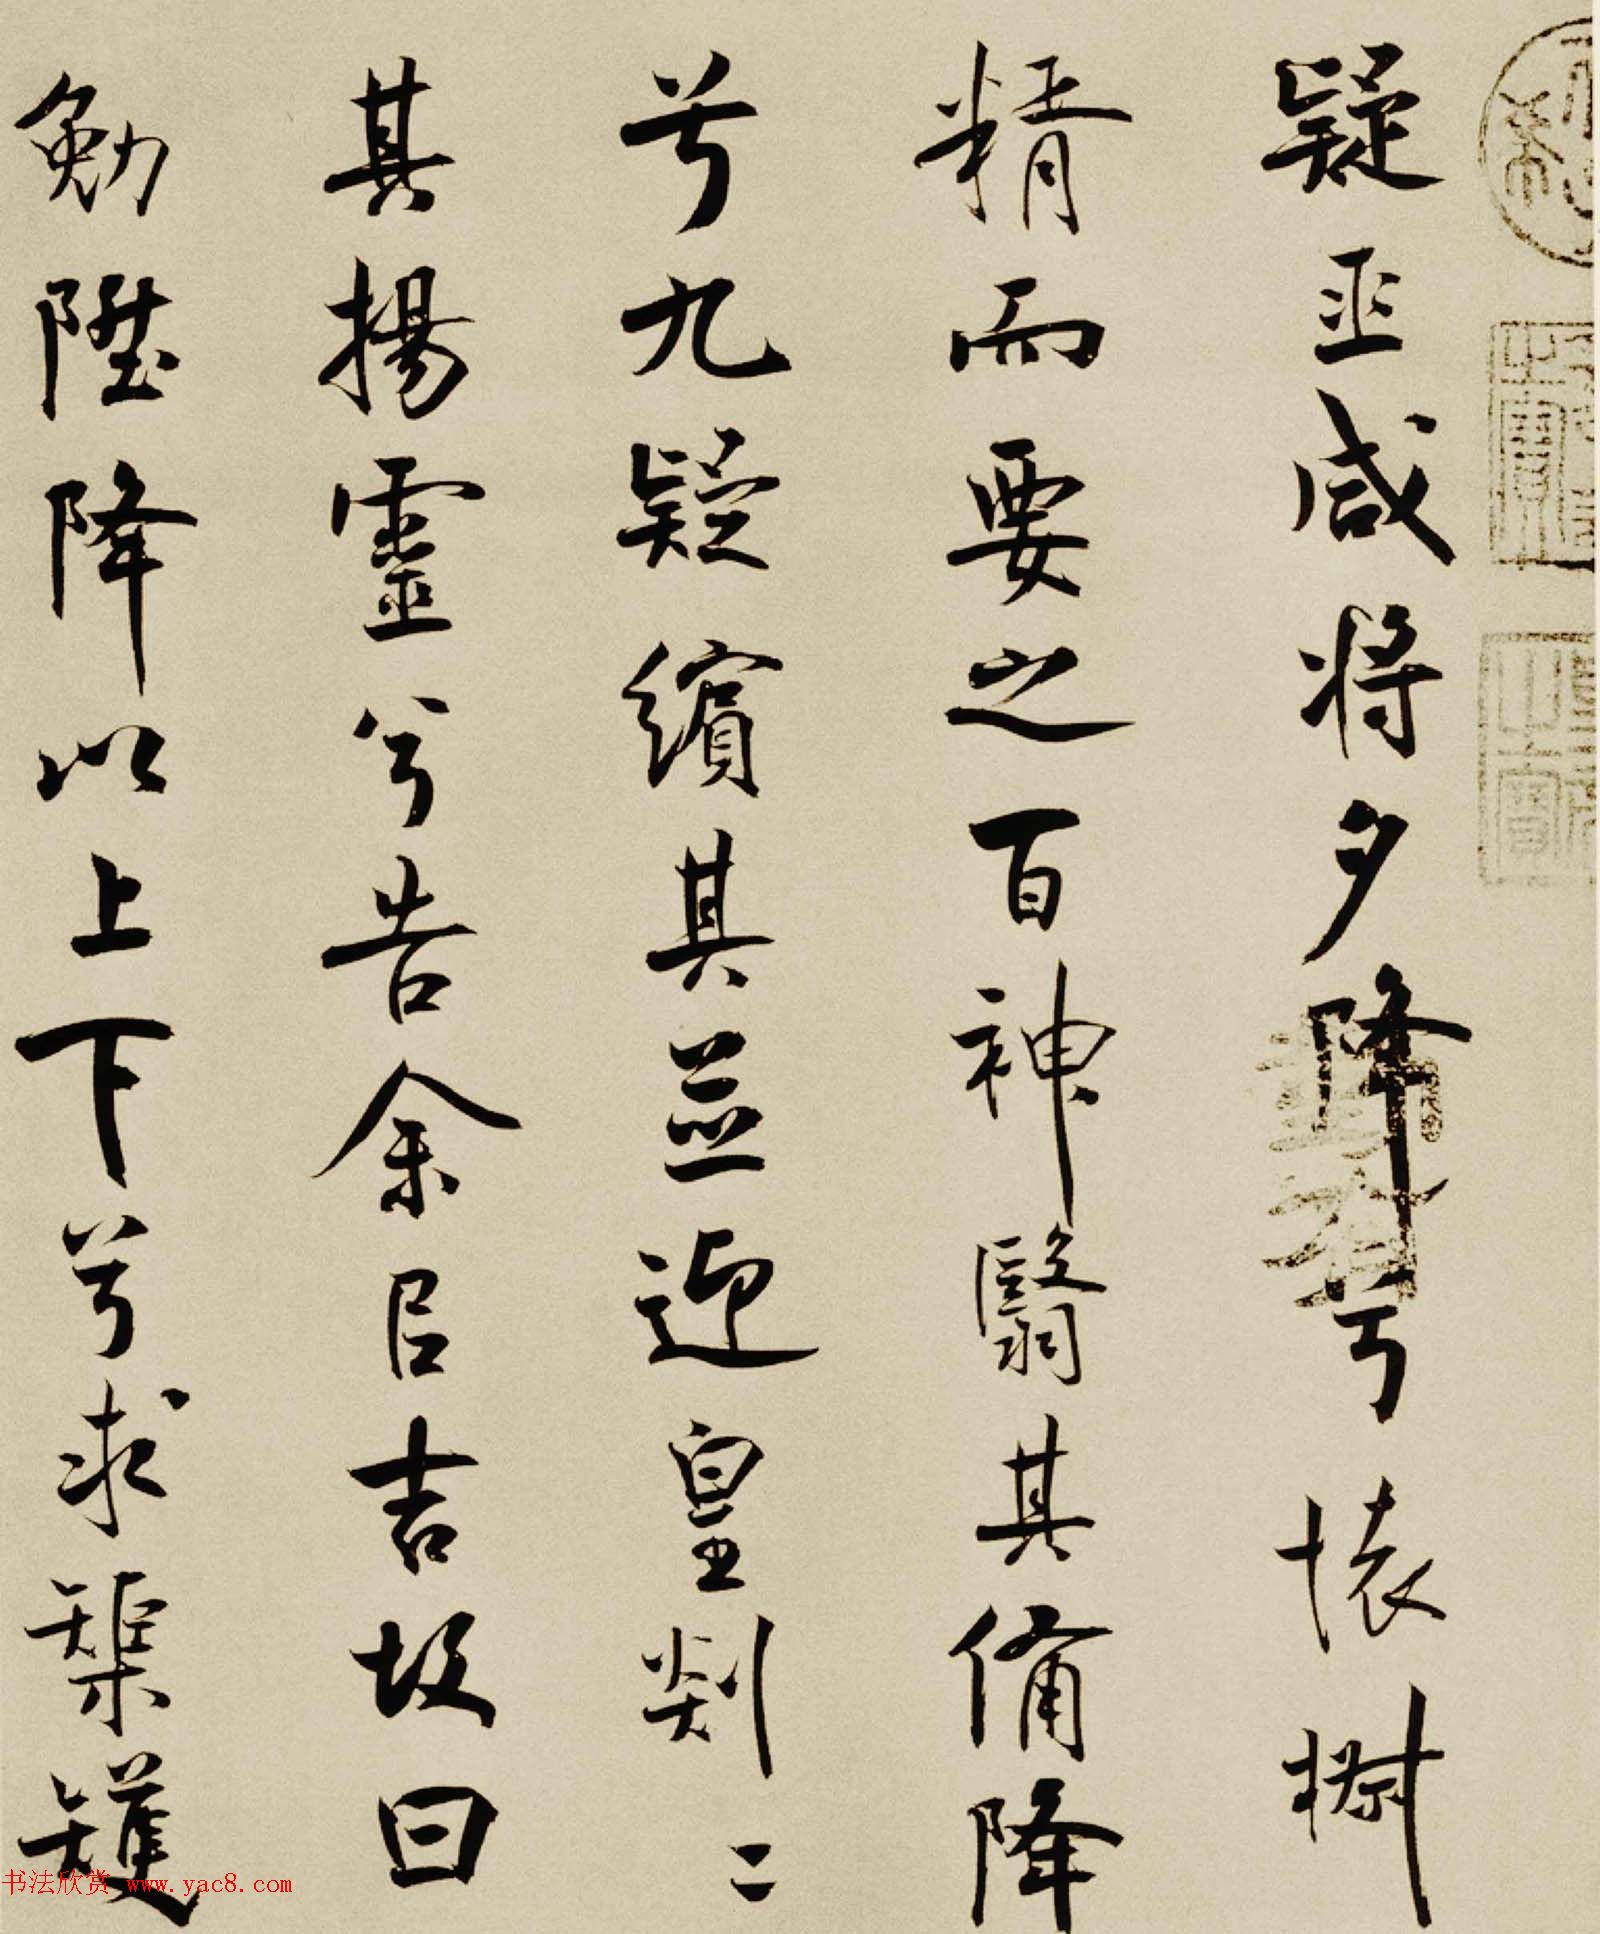 疑巫咸将夕降兮懷椒
精而要之百神翳其備降
兮九疑繽其並迎皇剡〻
其揚靈兮告余㠯吉故曰
勉陞降以上下兮求榘矱
书法欣赏 www.yac8.com